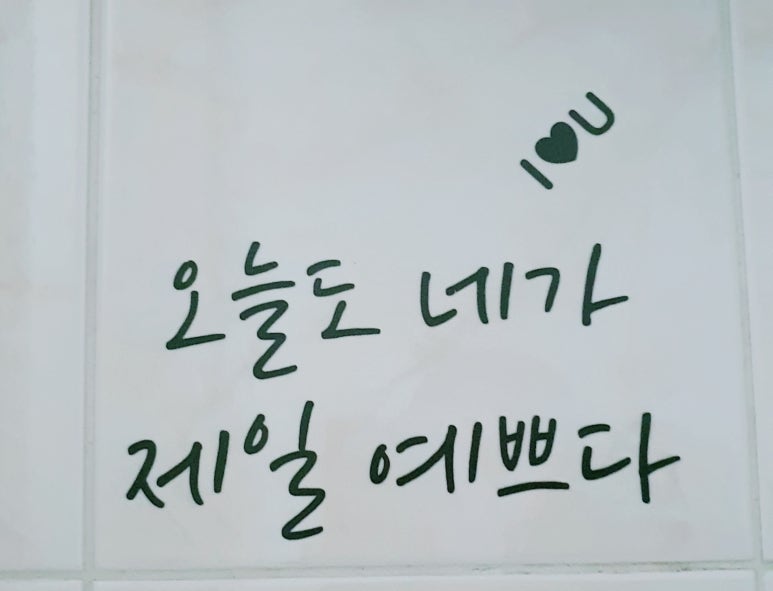 I♥U
오늘도 네가
제일 예쁘다